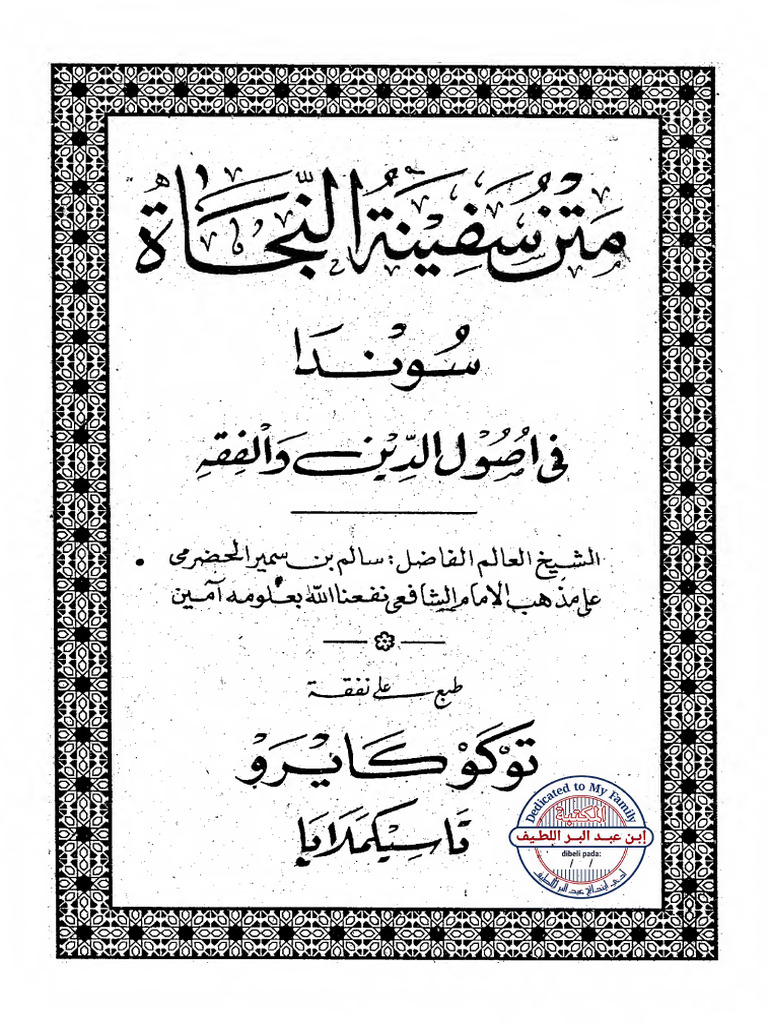 مَتْنُ سَفِيْنَةُ النَّجَاةُ
سُوْنْدَا
فِى اُصُوْلِ الدِّيْنِ وَالْفِقْهِ
الشيخ العالم الفاضل: سالم بن سمير الحضرمى
على مذهب الامام الشافعى نفعنا الله بعلومه آمين
طبع على نفقة
تَوْكَوْ كَايْرَوْ
تَاسِيْكمَلَايَا
Dedicated to My Family
المكتبة
إبن عبد البر اللطيف
dibeli pada:
/ /